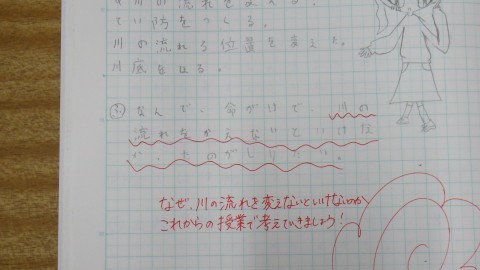 川の流れを変える。
てい防をつくる。
川の流れる位置を変えた。
川底をほる。
㋫なんで、命がけで、川の
流れをかえないといけな
かったのがしりたい。
なぜ、川の流れを変えないといけないのか
これからの授業で考えていきましょう!